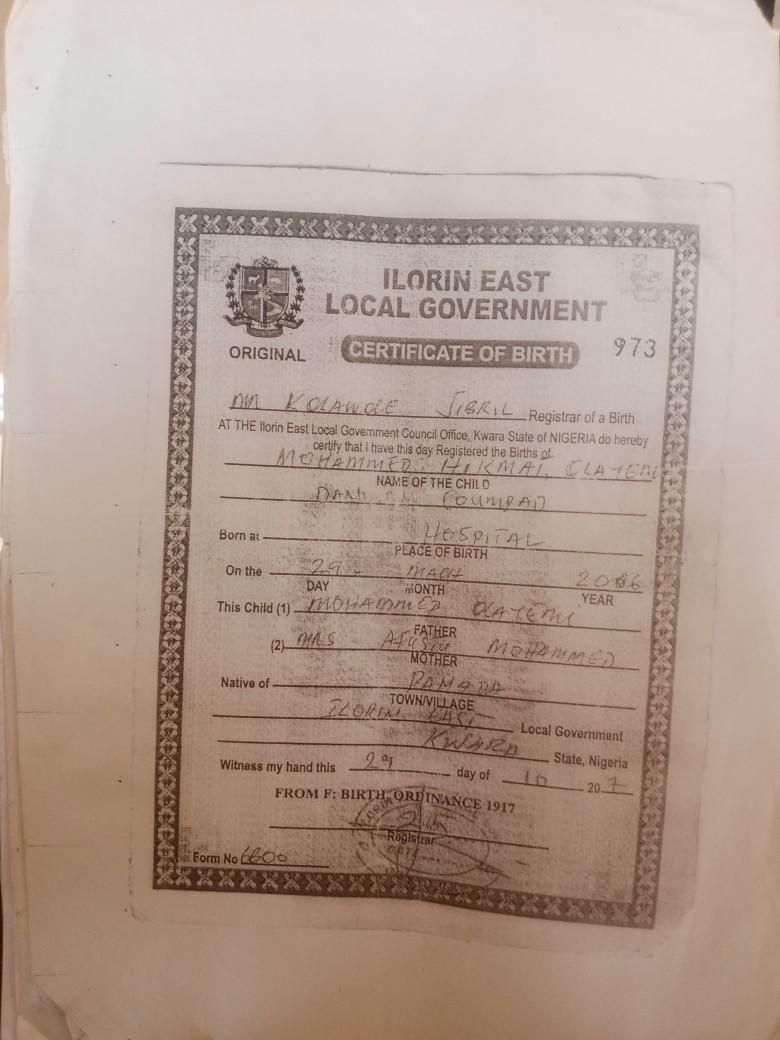 ILORIN EAST
LOCAL GOVERNMENT
ORIGINAL
CERTIFICATE OF BIRTH
973
MR KOLAWOLE JIBRIL Registrar of a Birth
AT THE Ilorin East Local Government Council Office, Kwara State of NIGERIA do hereby
certify that I have this day Registered the Births of
MOHAMMED HIKMAL OLAYEMI
NAME OF THE CHILD
Born at HOSPITAL
PLACE OF BIRTH
On the 29 MACH
DAY MONTH YEAR
This Child (1) MOHAMMED OLAYEMI
FATHER
(2) MRS AFUSTU MOHAMMED
MOTHER
Native of PAMADA
TOWN/VILLAGE
ILORIN EAST Local Government
KWARA State, Nigeria
Witness my hand this 29 day of 10 20 7
FROM F: BIRTH, ORDINANCE 1917
Registrar
Form No 6800